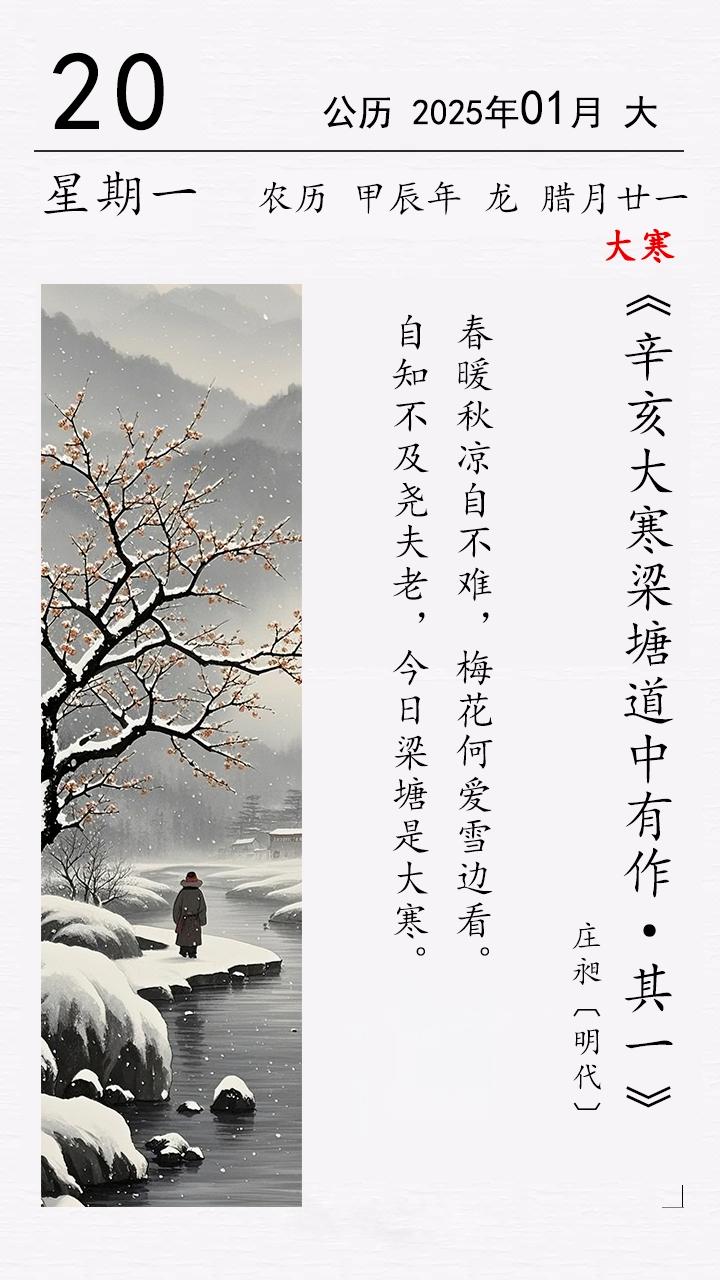 20
公历 2025年01月 大
星期一
农历 甲辰年 龙 腊月廿一
大寒
《辛亥大寒梁塘道中有作·其一》
庄昶〔明代〕
春暖秋凉自不难，梅花何爱雪边看。
自知不及尧夫老，今日梁塘是大寒。